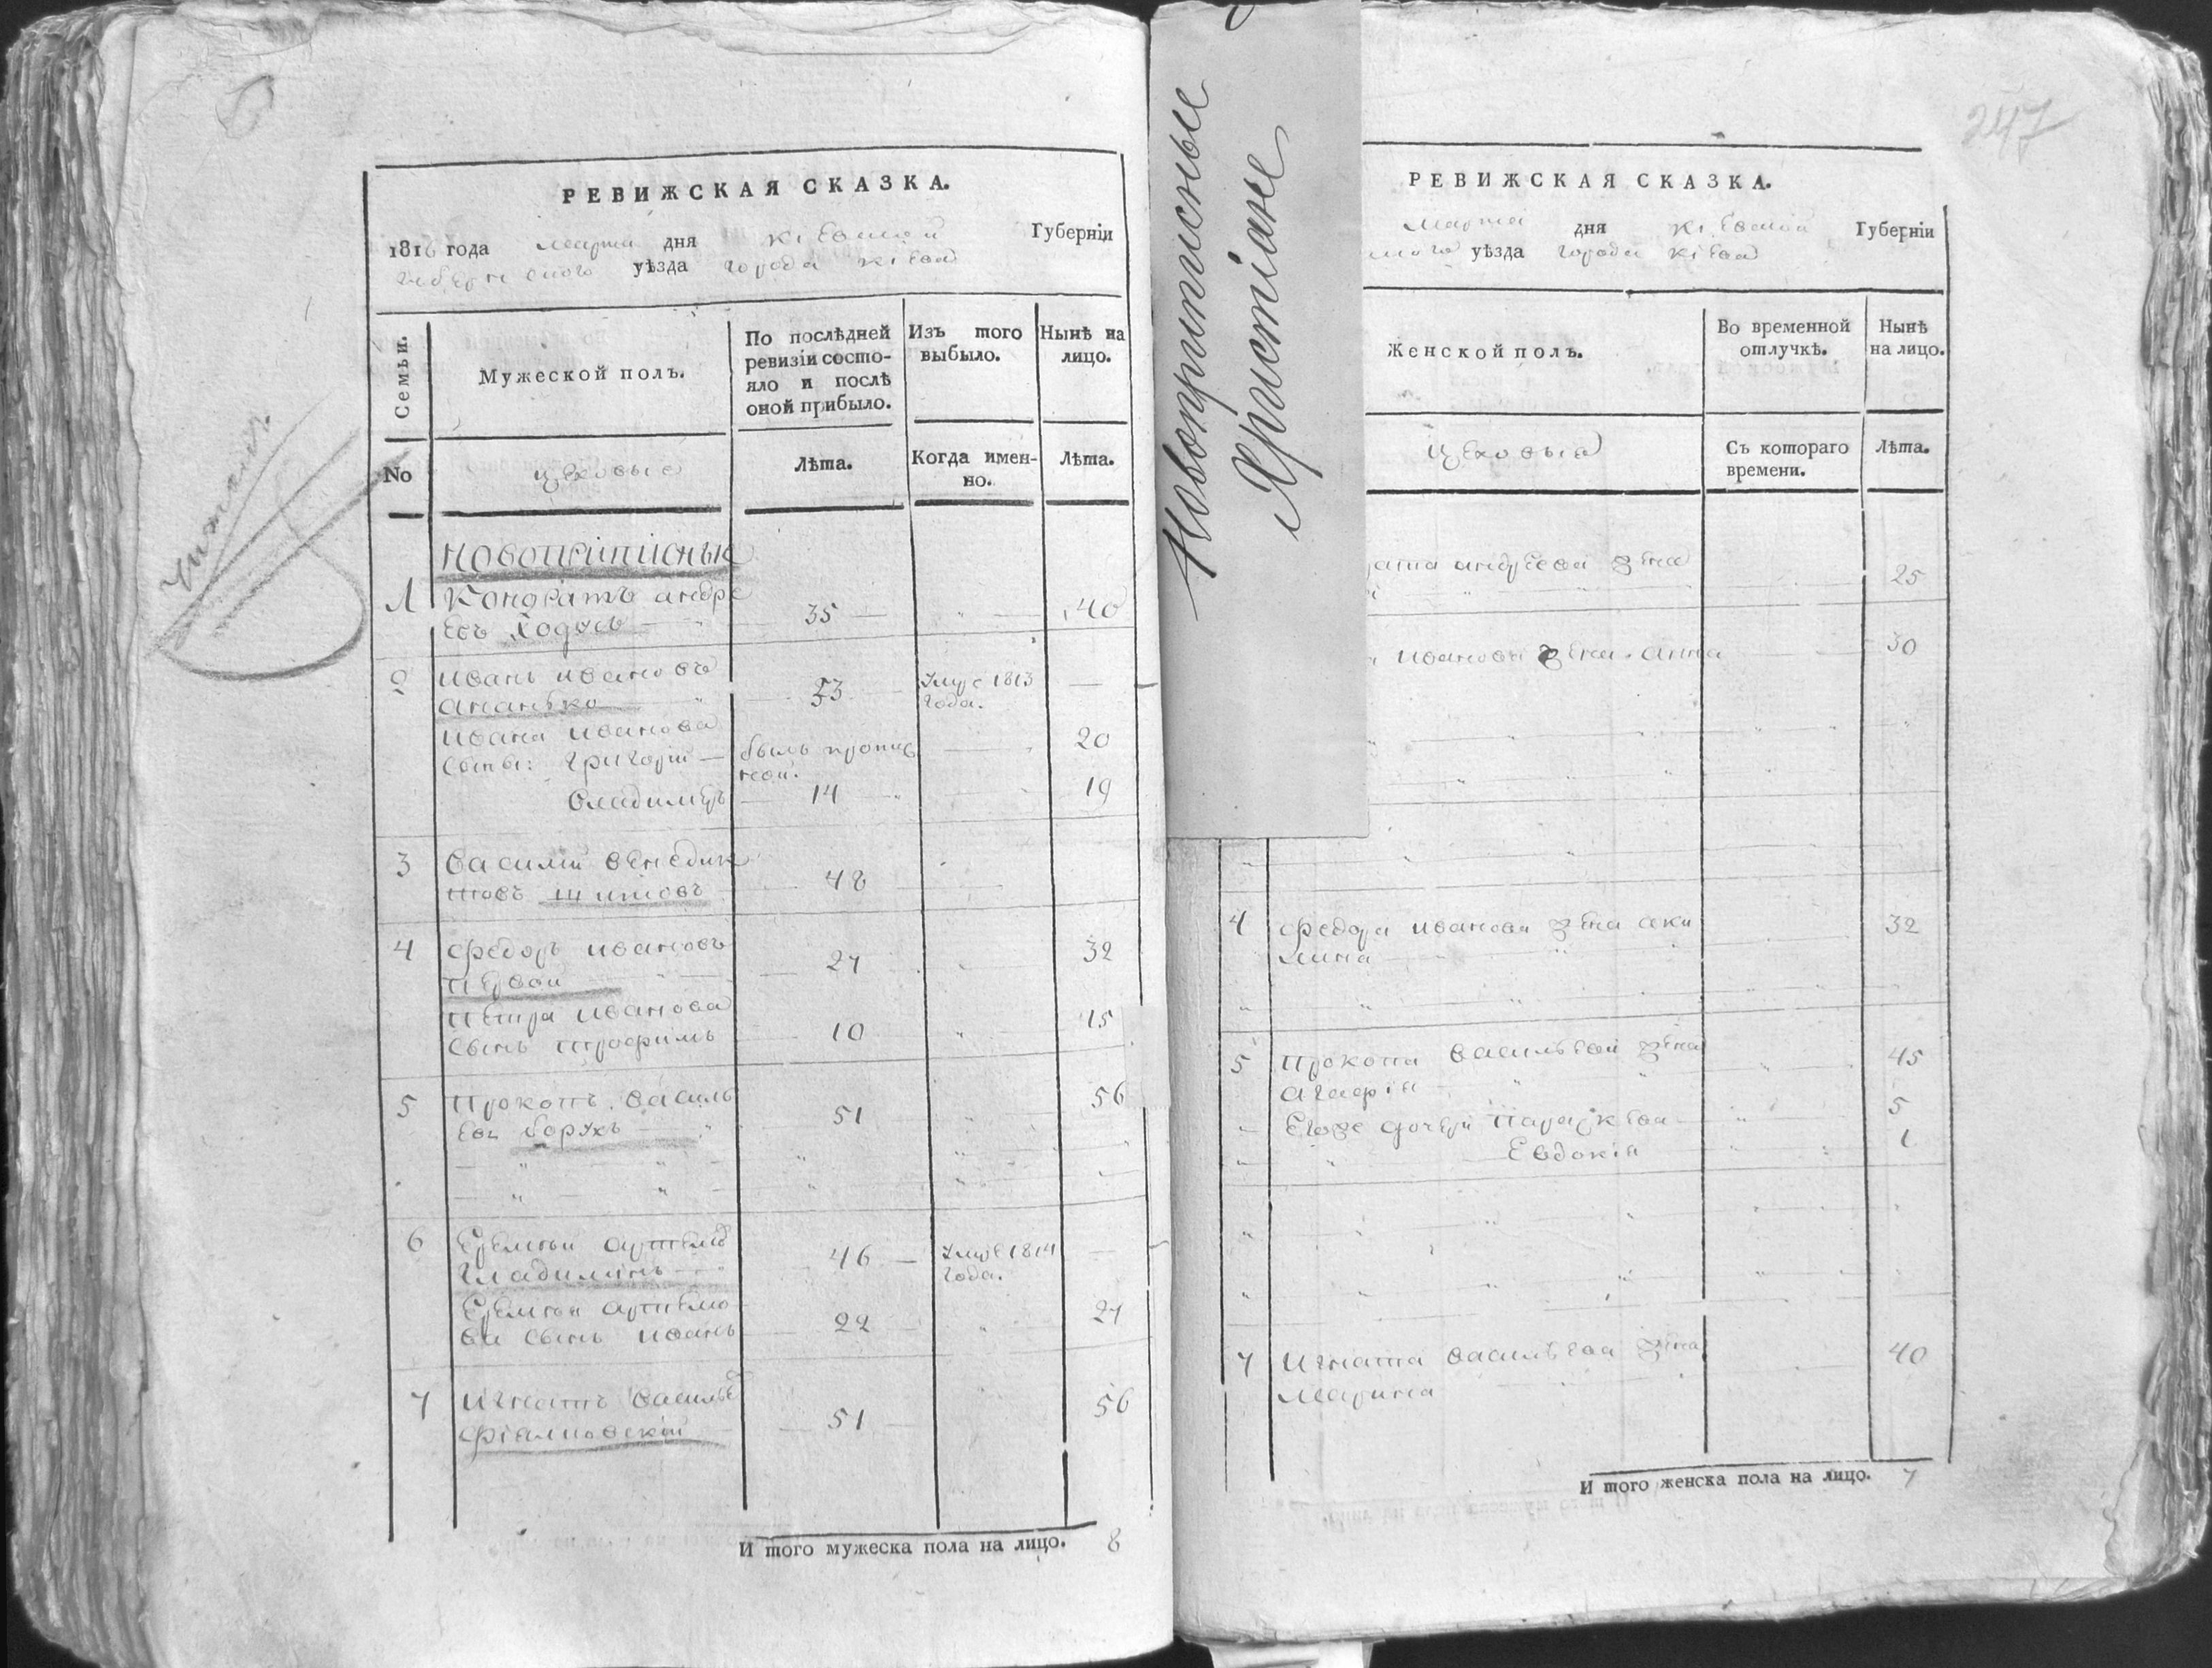 РЕВИЖСКАЯ СКАЗКА.
1816 года Марта дня Кіевской Губерніи
уѣзда города Кіева
Семьи.
Мужеской полъ.
По послѣдней
ревизіи состо-
яло и послѣ
оной прибыло.
Изъ того
выбыло.
Нынѣ на
лицо.
No
цеховые
Лѣта.
Когда имен-
но.
Лѣта.
новоприписныя
1 Кондратъ андре
евъ Ходусъ 35 40
2 Иванъ ивановъ
ананько 53 Умре 1813
года.
Ивана иванова
сыны: Григорій былъ пропис
ной. 20
владимеръ 14 19
3 василій венедик
товъ шиповъ 48
4 федоръ ивановъ
первой 27 32
Петра иванова
сынъ трофимъ 10 15
5 Прокопъ василь
евъ борухъ 51 56
6 Еремѣй артемов
гладилинъ 46 Умре 1814
года.
Еремѣя артемо
ва сынъ иванъ 22 27
7 Игнатъ василье
фіалковскій 51 56
И того мужеска пола на лицо. 8
Новоприписные
Христіане
247
РЕВИЖСКАЯ СКАЗКА.
Марта дня Кіевской Губерніи
уѣзда города Кіева
Женской полъ.
Во временной
отлучкѣ.
Нынѣ
на лицо.
цеховые
Съ котораго
времени.
Лѣта.
андреева жена
25
иванова жена анна 30
4 федора иванова жена аки
лина 32
5 Прокопа васильева жена
агафія 45
Егоже дочери параскева 5
Евдокія 1
7 Игната васильева жена
марина 40
И того женска пола на лицо. 7